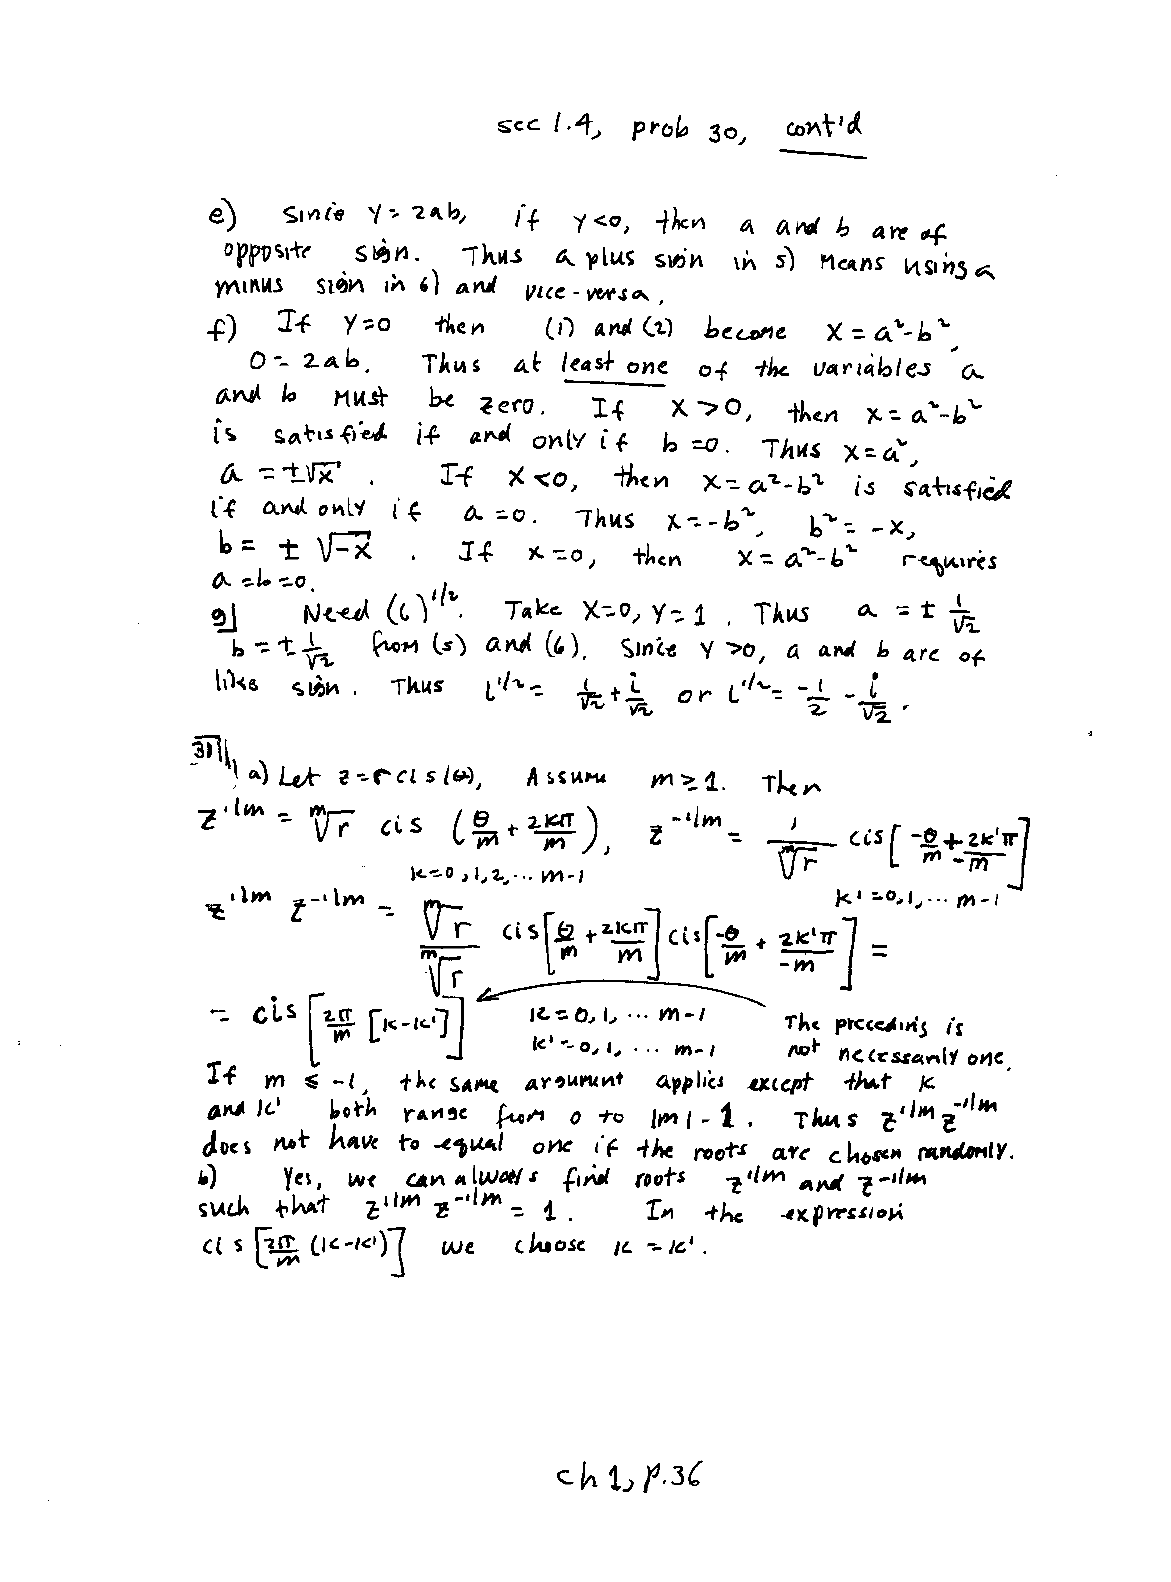 sec 1.4, prob 30, cont'd
e) Since y=2ab, if y<0, then a and b are of
opposite sign. Thus a plus sign in 5) means using a
minus sign in 6) and vice-versa.
f) If y=0 then (1) and (2) become x=a²-b²,
0=2ab. Thus at least one of the variables a
and b must be zero. If x>0, then x=a²-b²
is satisfied if and only if b=0. Thus x=a²,
a=±√x. If x<0, then x=a²-b² is satisfied
if and only if a=0. Thus x=-b², b²=-x,
b=±√-x. If x=0, then x=a²-b² requires
a=b=0.
g) Need (i)^1/2. Take x=0, y=1. Thus a=±1/√2
b=±1/√2 from (5) and (6). Since y>0, a and b are of
like sign. Thus i^1/2 = 1/√2 + i/√2 or i^1/2 = -1/2 - i/√2.
31 a) Let z=r cis(θ), Assume m≥1. Then
z^1/m = ᵐ√r cis(θ/m + 2kπ/m), z^-1/m = 1/ᵐ√r cis[-θ/m + 2k'π/-m]
k=0,1,2,...m-1 k'=0,1,...m-1
z^1/m z^-1/m = ᵐ√r/ᵐ√r cis[θ/m + 2kπ/m] cis[-θ/m + 2k'π/-m] =
= cis[2π/m [k-k']] k=0,1,...m-1 The preceding is
k'=0,1,...m-1 not necessarily one.
If m≤-1, the same argument applies except that k
and k' both range from 0 to |m|-1. Thus z^1/m z^-1/m
does not have to equal one if the roots are chosen randomly.
b) Yes, we can always find roots z^1/m and z^-1/m
such that z^1/m z^-1/m = 1. In the expression
cis[2π/m (k-k')] we choose k=k'.
ch 1, p.36